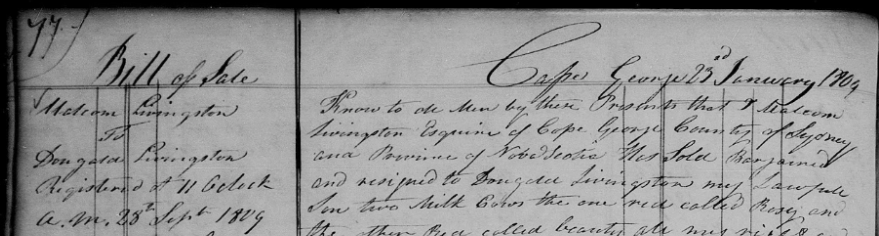 77
Bill of Sale
Malcom Livingston
To
Dougald Livingston
Registered at 11 Oclock
A.M. 28th Sept 1809
Cape George 23rd January 1809
Know to all Men by these Presents that I Malcom
Livingston Esquire of Cape George County of Sydney
and Province of Nova Scotia Has Sold Bargained
and resigned to Dougald Livingston my Lawfull
Son two Milk Cows the one red called Rosy and
the other Red called beauty all my right &